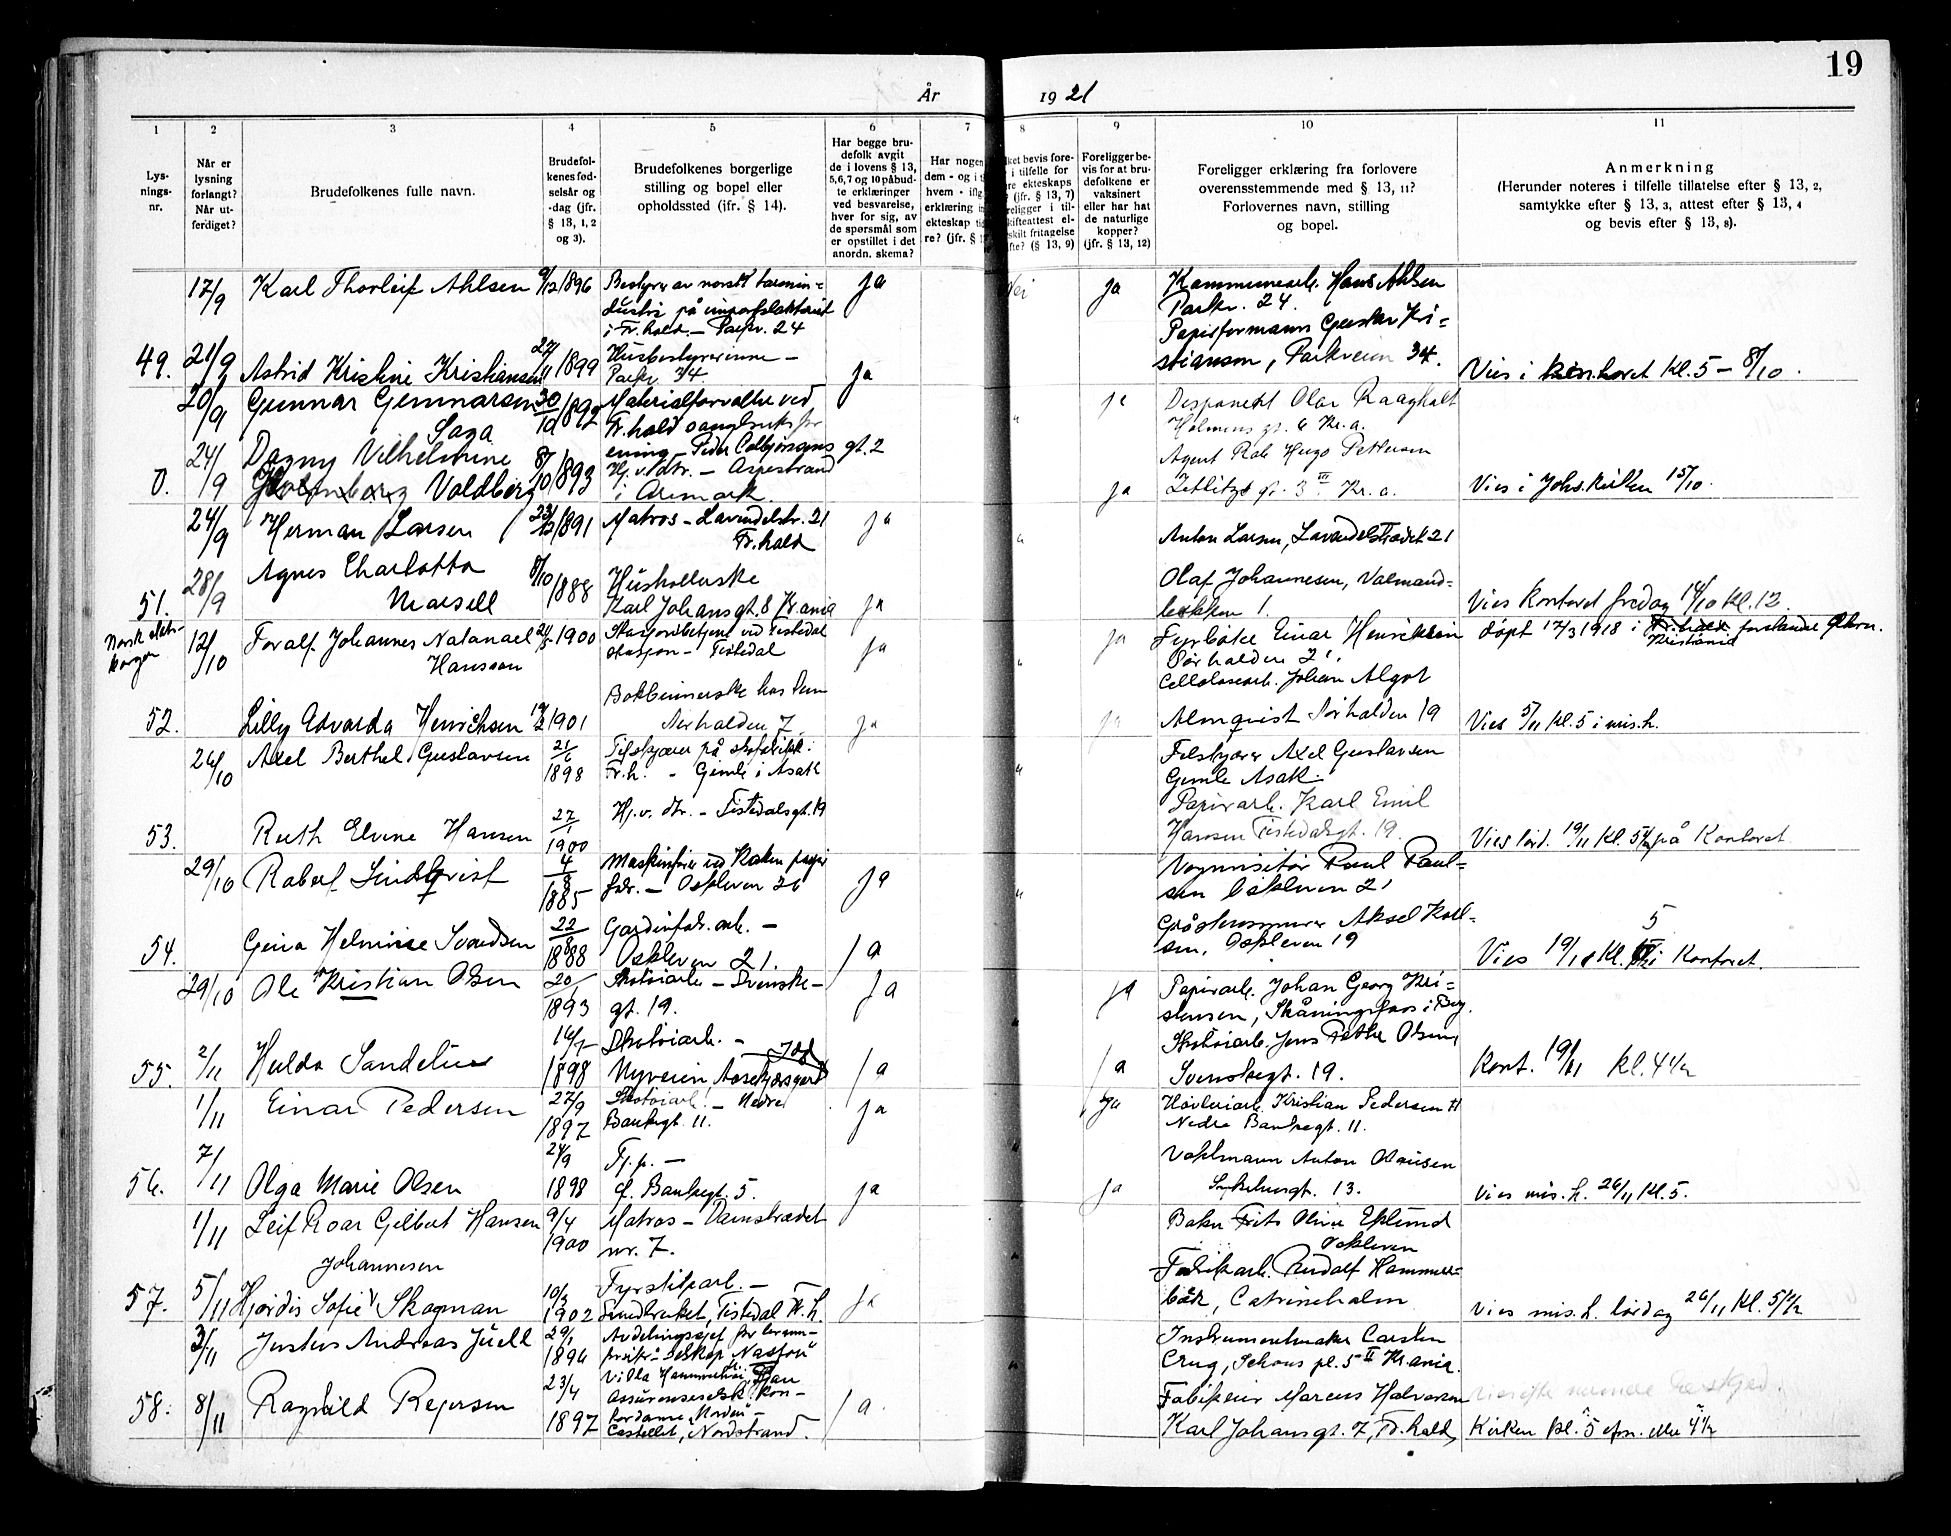 19
År 1921
1 2 3 4 5 6 7 8 9 10 11
Lys-
nings-
nr.
Når er
lysning
forlangt?
Når ut-
ferdiget?
Brudefolkenes fulle navn.
Brudefol-
kenes fød-
selsår og
-dag (jfr.
§ 13, 1, 2
og 3).
Brudefolkenes borgerlige
stilling og bopel eller
opholdssted (ifr. § 14).
Har begge bru-
defolk avgit
de i lovens § 13,
5,6,7 og 10 påbud-
te erklæringer
ved besvarelse,
hver for sig, av
de spørsmål som
er opstillet i det
anordn. skema?
Har nogen
dem - og i t
hvem - ifl
erklæring i
ekteskap ti
re? (jfr. § 1
ket bevis fore-
i tilfelle for
re ekteskaps
(jfr. § 13, 7)
religger i til-
kifteattest el-
skilt fritagelse
fte? (§ 13, 9)
Foreligger be-
vis for at bru-
defolkene er
vaksinert
eller har hat
de naturlige
kopper?
(jfr. § 13, 12)
Foreligger erklæring fra forlovere
overensstemmende med § 13, 11?
Forlovernes navn, stilling
og bopel.
Anmerkning
(Herunder noteres i tilfelle tillatelse efter § 13, 2,
samtykke efter § 13, 3, attest efter § 13, 4
og bevis efter § 13, 8).
17/9 Karl Thorleif Ahlsen 9/12 1896 Bestyrer av norsk
på
i Fr.hald. – Parkv. 24
ja Nei ja
Kommunearb. Hans Ahlsen
Parkv. 24.
Papirformann Gustav Kri-
stiansen, Parkveien 34.
49. 21/9 Astrid Kristine Kristiansen 27/11 1899 Husbestyrerinne –
Parkv. 34. ja
Vies i kl. 5 – 8/10.
20/9 Gunnar Gunnarsen 30/10 1892 Materialforvalter ved
Saga Fr.hald
Peder Colbjørnsens gt. 2
ja Disponent Olav Raagholt
Holmens gt. 6 Kr.a.
24/9 Dagny Vilhelmine
Voldberg 8/10 1893 Hj. v. dtr. – Aspestrand
i Aremark.
ja Agent Rob. Hugo Pettersen
gt. 3 III Kr.a.
Vies i Johs.kirken 15/10.
24/9 Herman Larsen 1891 Matros – Lavendelstr. 21
Fr.hald ja
Anton Larsen, Lavendelstrædet 21
51. 28/9 Agnes Charlotta
Marsell 8/10 1888 Husholderske
Karl Johansgt. 8 Kr.ania ja
Olaf Johannesen, Valmand-
bakken 1.
Vies kontoret fredag 14/10 kl. 12.
12/10 Toralf Johannes Natanael
Hansson 1900 Stasjonsbetjent ved Tistedal
stasjon – Tistedal ja ja
Fyrbøter Einar Henriksen
Sørhalden 21.
døpt 17/3 1918 i Kristiania
52. Lilly Edvarda Henrichsen 1901 Bokbinnerske hos
Nerhalden 7. ja ja
Cellulosearb. Johan Algot
Almqvist Sørhalden 19
Vies 5/11 kl. 5 i mis.h.
26/10 Axel Berthel Gustavsen 21/6
1898 Tilskjærer på skofabrikk
Fr.h. – Gimle i Asak
Tilskjærer Axel Gustavsen
Gimle Asak.
53. Ruth Elvine Hansen 27/1
1900 Hj. v. dtr. – Tistedalsgt. 19
Papirarb. Karl Emil
Hansen Tistedalsgt. 19.
Vies lørd. 19/11 kl. 5½ på Kontoret.
29/10 Robert Lindqvist 4/8
1885 Maskinfører ved papir
fabr. – Oskleven 26 ja
Vognvisitør Paul Paul-
sen Oskleven 21
54. Gina Helmine Svendsen 22/8
1888 Gardinfabr.arb. –
Oskleven 21. ja
Aksel Karl-
sen, Oskleven 19
5
Vies 19/11 kl. i Kontoret.
29/10 Ole Kristian Olsen 20/1
1893 Skotøiarb. – Svenske-
gt. 19. ja ja
Papirarb. Johan Georg Kri-
stensen, i Berg.
55. 2/11 Hulda Sandelius 14/7
1898 Skotøiarb. –
Nyveien, ja ja
Skotøiarb. Jens Petter Olsen,
Svenskegt. 19.
Kont. 19/11 kl. 4½
1/11 Einar Pedersen 27/9
1897 Skotøiarb. – Nedre
Bankegt. 11. ja ja
Høvleriarb. Kristian Pedersen
Nedre Bankegt. 11.
56. 7/11 Olga Marie Olsen 24/9
1898 Tj.p. –
Ø. Bankegt. 5. ja ja
Anton Olausen
13.
Vies mis.h. 26/11 kl. 5.
1/11 Leif Roar Gilbert Hansen 9/4
1900 Matros – Damstrædet
nr. 7.
Baker Frits Oliver Eklund
Oskleven
57. 5/11 Johannesen
Hjørdis Sofie Skogman 10/3
1902 Fyrstikarb. –
Tistedal Fr.h. ja
Fabrikarb. Rudolf Hammer-
bäck, Catrineholm
Vies mis.h. lørdag 26/11 kl. 5½
3/11 Justus Andreas Juell 29/1
1894 Avdelingssjef
Villa
Instrumentmaker Carsten
Crug, Schous pl. 5 II Kr.ania.
58. 8/11 Ragnhild Rejersen 23/4
1897 Assuranseselsk. kon-
tordame "Norden" –
Castellet, Nordstrand. ja
Fabrikeier Marcus Halvorsen
Karl Johansgt. 7, Fr.hald,
Kirken kl. 5 efm. eller 4½